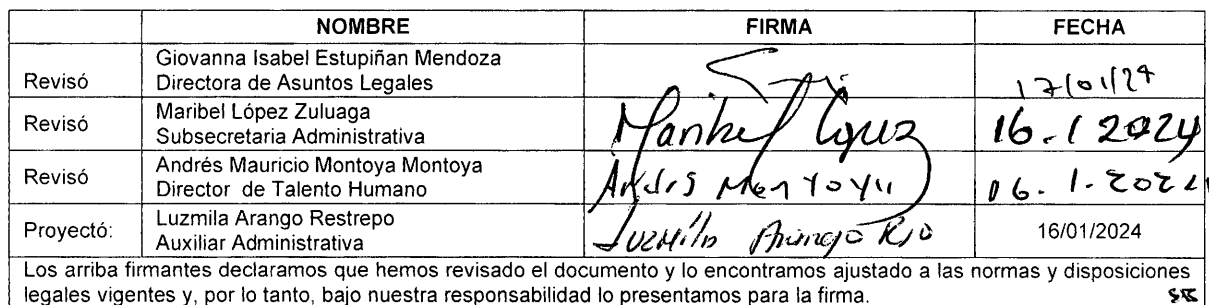 NOMBRE FIRMA FECHA
Giovanna Isabel Estupiñan Mendoza
Revisó Directora de Asuntos Legales 17/01/24
Maribel López Zuluaga
Revisó Subsecretaria Administrativa Maribel López 16.1 2024
Andrés Mauricio Montoya Montoya
Revisó Director de Talento Humano Andrés Montoya
Luzmila Arango Restrepo
Proyectó: Auxiliar Administrativa Luzmila Arango 16/01/2024
Los arriba firmantes declaramos que hemos revisado el documento y lo encontramos ajustado a las normas y disposiciones
legales vigentes y, por lo tanto, bajo nuestra responsabilidad lo presentamos para la firma.